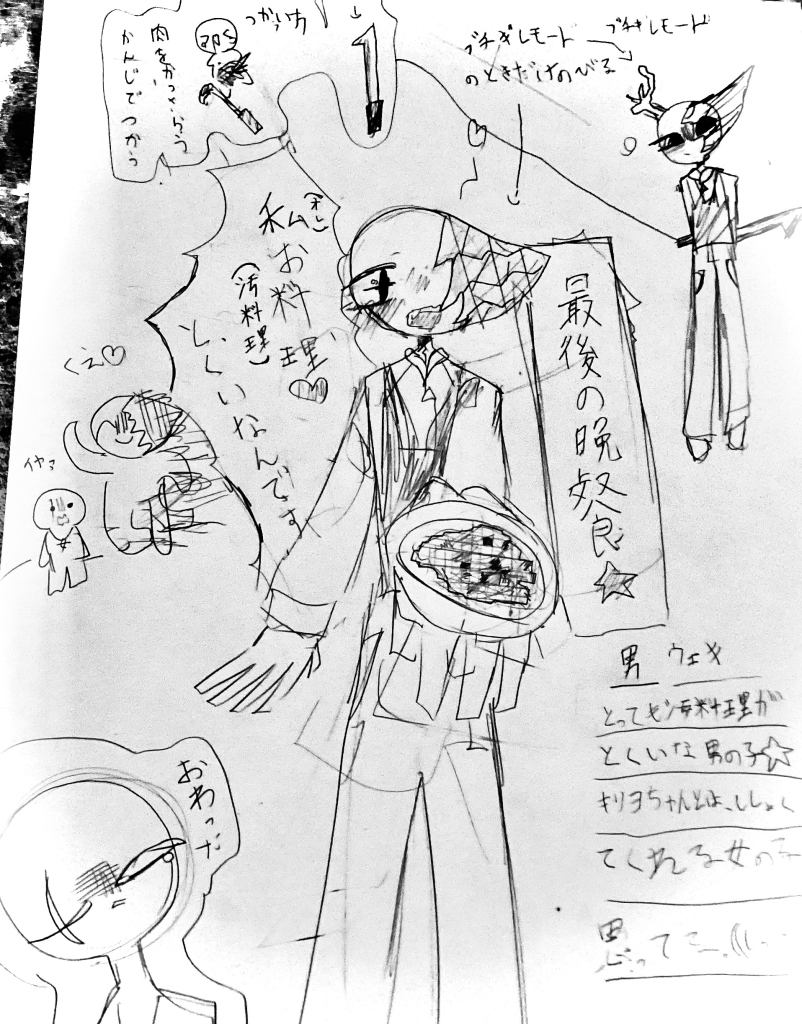 つかいカ
肉をかっさらう
かんじでつかう
ブチギレモード
のときだけのびる
ブチギレモード
私
お料理♡
(汚料理)
とくいなんです
くえ♡
イヤァ
最後の晩餐☆
おわった
男 ウェキ
とってモ汚料理が
とくいな男の子☆
キリヨちゃんとは、ししょく
てくれる女の子
思って